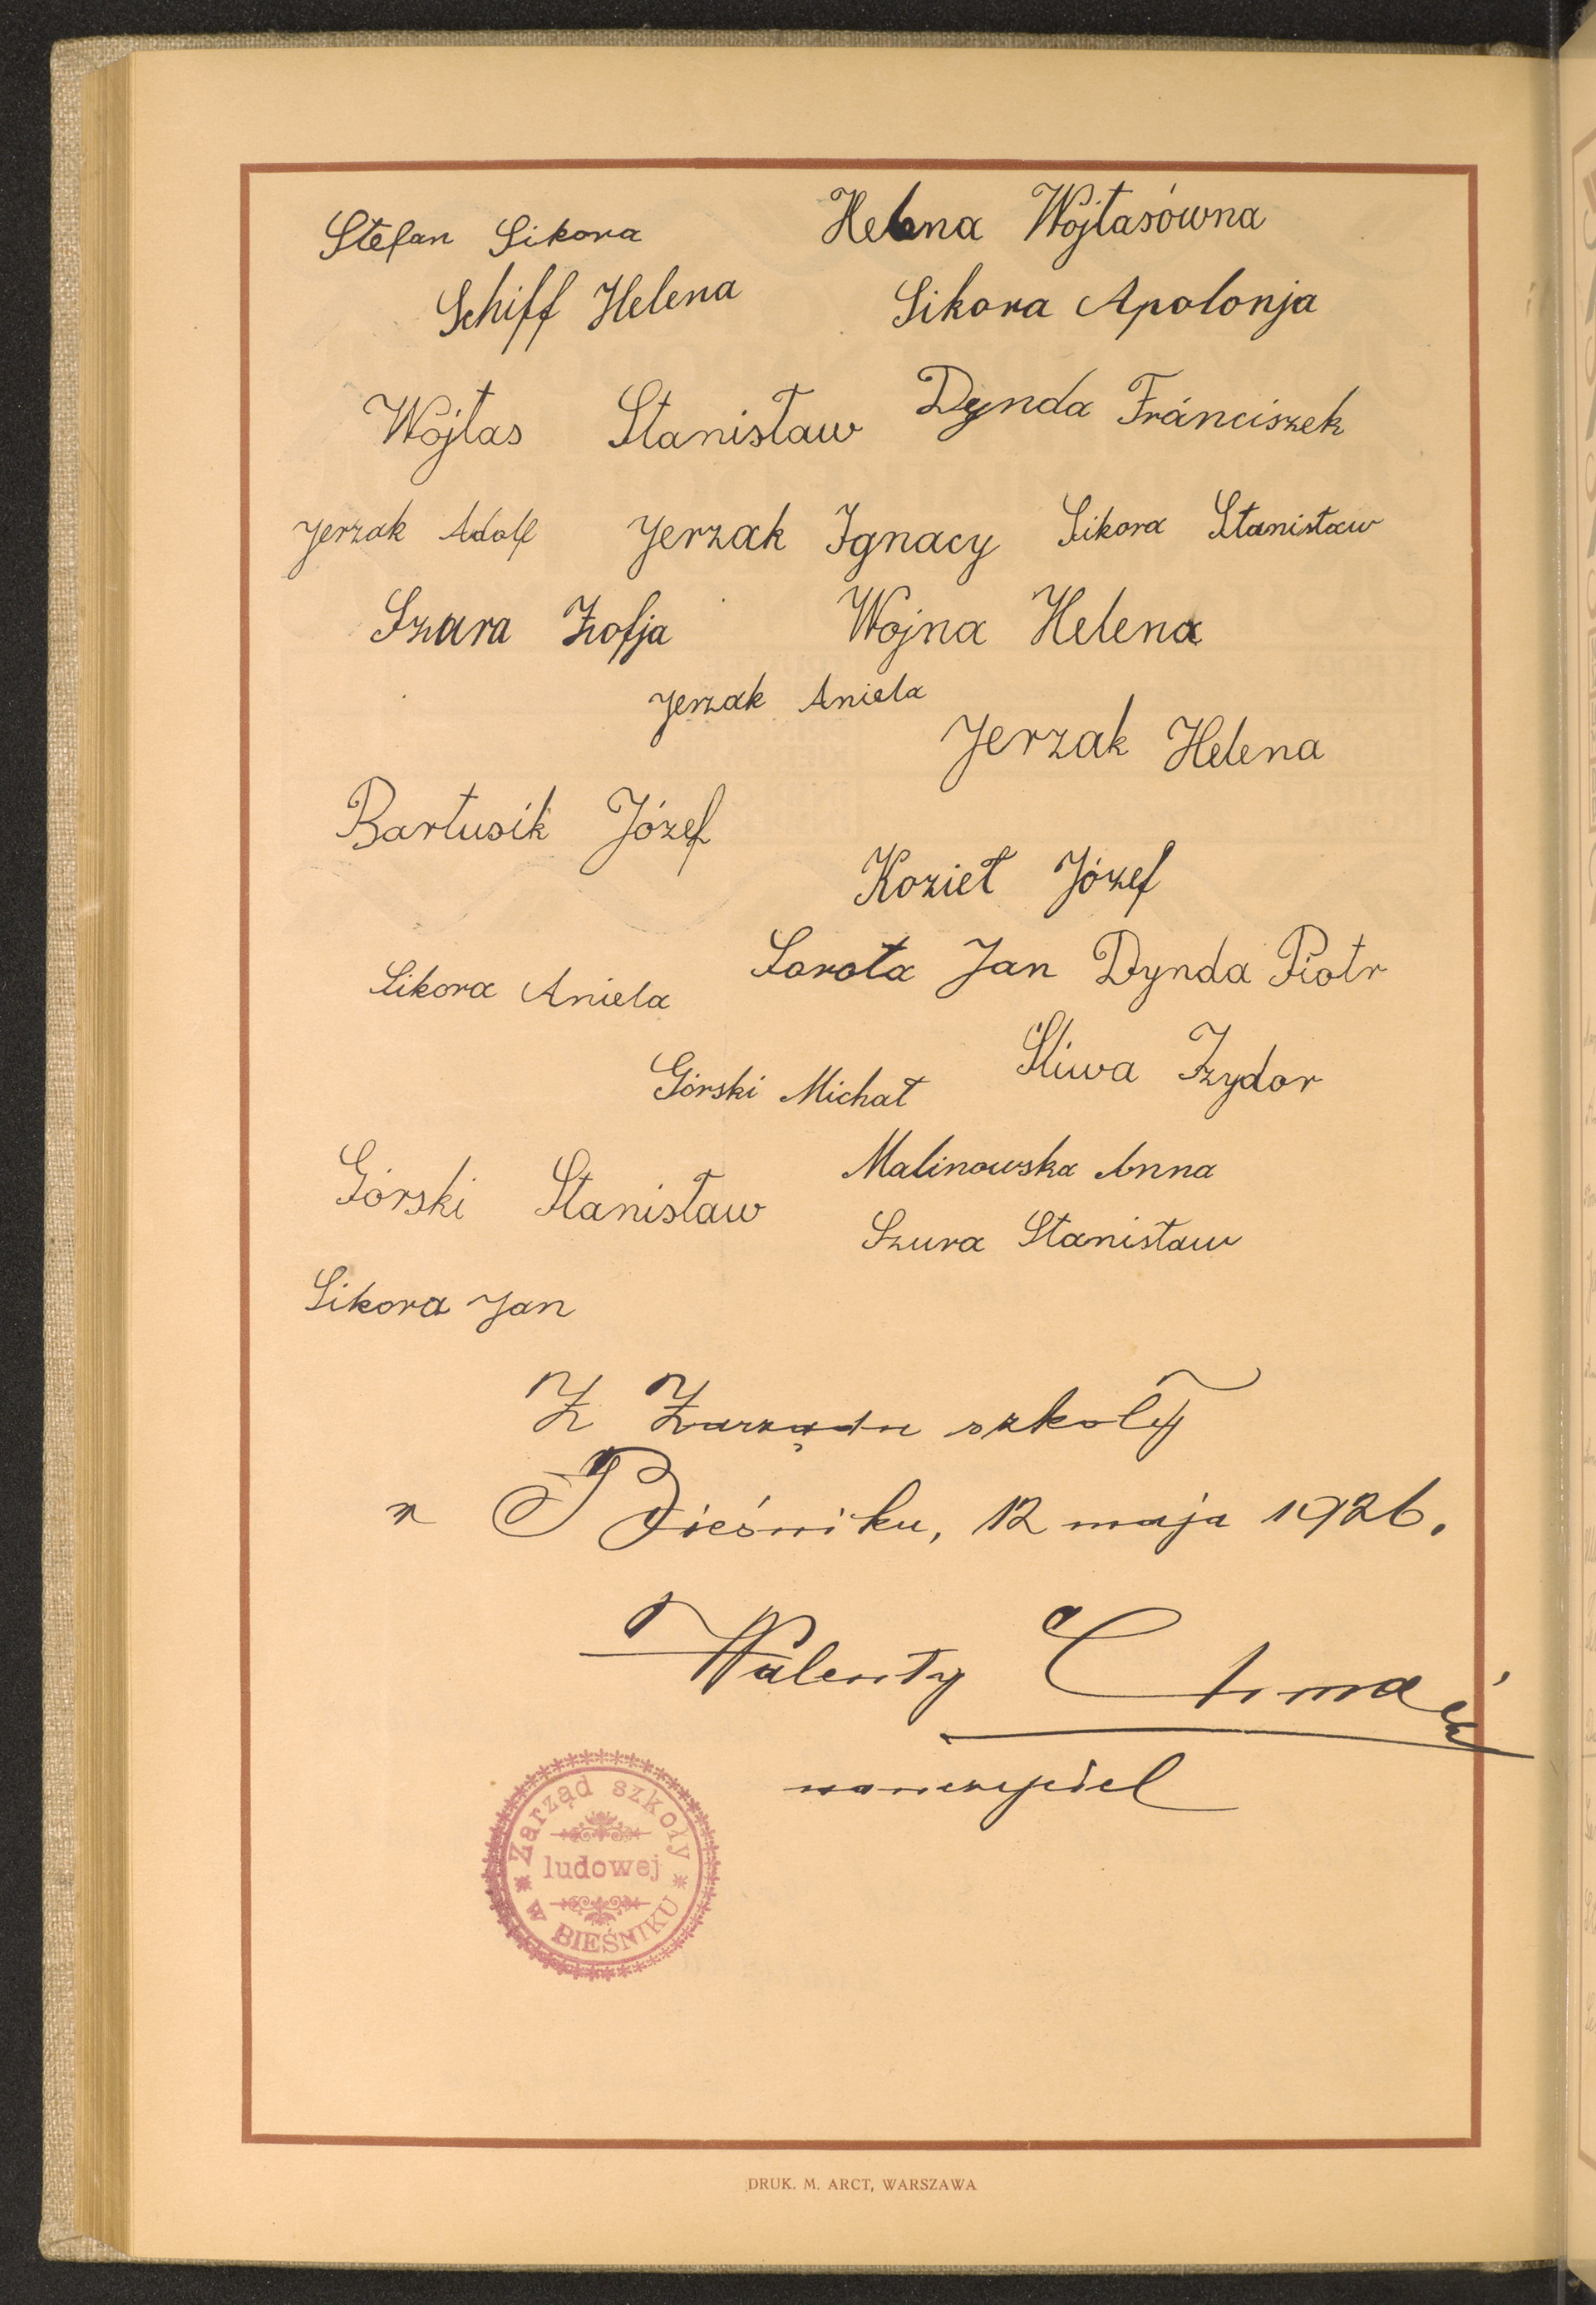 Stefan Sikora Helena Wojtasówna
Schiff Helena Sikora Apolonja
Wojtas Stanisław Dynda Franciszek
Jerzak Adolf Jerzak Ignacy Sikora Stanisław
Szara Zofja Wojna Helena
Jerzak Aniela
Jerzak Helena
Bartusik Józef
Kozieł Józef
Sikora Aniela Sarota Jan Dynda Piotr
Górski Michał Śliwa Izydor
Górski Stanisław Malinowska Anna
Szura Stanisław
Sikora Jan
Z Zarządu szkoły
w Bieśniku, 12 maja 1926.
Walenty
nauczyciel
Zarząd szkoły
ludowej
w BIEŚNIKU
DRUK. M. ARCT, WARSZAWA